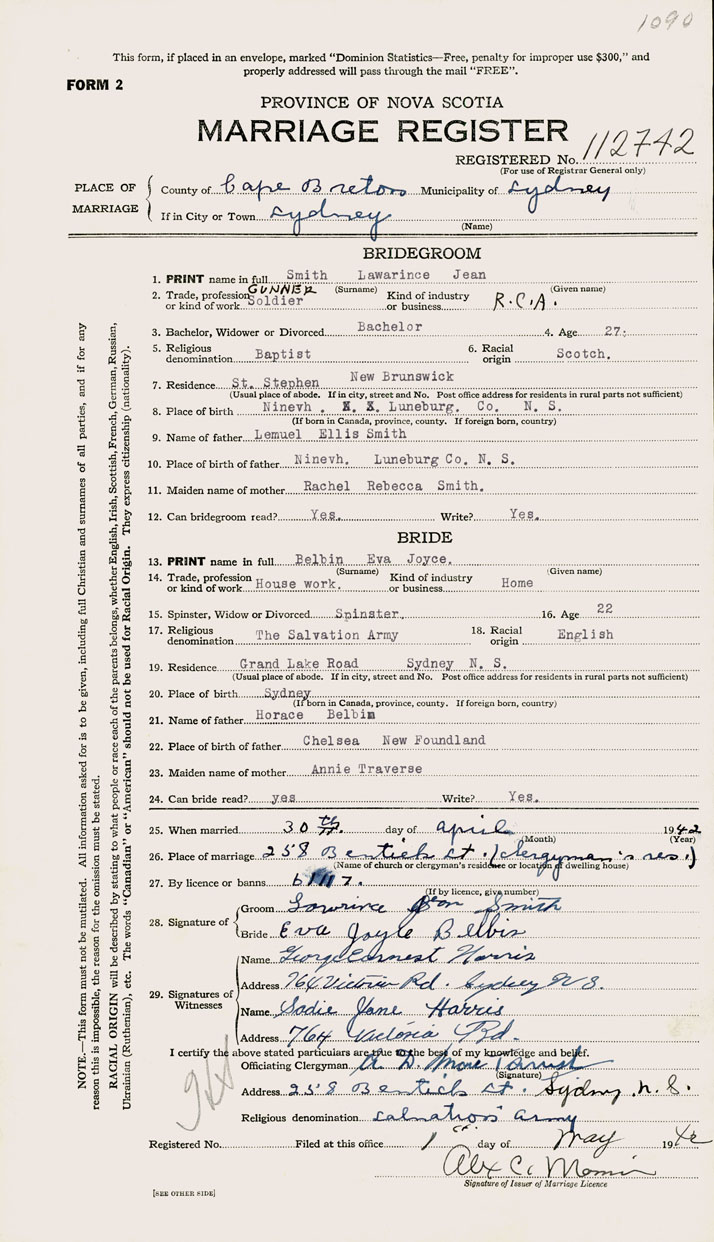 1090
This form, if placed in an envelope, marked "Dominion Statistics—Free, penalty for improper use $300," and
properly addressed will pass through the mail "FREE".
FORM 2
PROVINCE OF NOVA SCOTIA
MARRIAGE REGISTER
REGISTERED No. 112742
(For use of Registrar General only)
PLACE OF MARRIAGE
County of Cape Breton Municipality of Sydney
If in City or Town Sydney
(Name)
BRIDEGROOM
1. PRINT name in full Smith Lawarince Jean
(Surname) (Given name)
2. Trade, profession or kind of work GUNNER Soldier Kind of industry or business R.C.A.
3. Bachelor, Widower or Divorced Bachelor 4. Age 27.
5. Religious denomination Baptist 6. Racial origin Scotch.
7. Residence St. Stephen New Brunswick
(Usual place of abode. If in city, street and No. Post office address for residents in rural parts not sufficient)
8. Place of birth Ninevh. X. X. Luneburg. Co. N. S.
(If born in Canada, province, county. If foreign born, country)
9. Name of father Lemuel Ellis Smith
10. Place of birth of father Ninevh. Luneburg Co. N. S.
11. Maiden name of mother Rachel Rebecca Smith.
12. Can bridegroom read? Yes. Write? Yes.
BRIDE
13. PRINT name in full Belbin Eva Joyce.
(Surname) (Given name)
14. Trade, profession or kind of work House work. Kind of industry or business Home
15. Spinster, Widow or Divorced Spinster. 16. Age 22
17. Religious denomination The Salvation Army 18. Racial origin English
19. Residence Grand Lake Road Sydney N. S.
(Usual place of abode. If in city, street and No. Post office address for residents in rural parts not sufficient)
20. Place of birth Sydney
(If born in Canada, province, county. If foreign born, country)
21. Name of father Horace Belbin
22. Place of birth of father Chelsea New Foundland
23. Maiden name of mother Annie Traverse
24. Can bride read? yes Write? Yes.
25. When married 30th. day of April 1942
(Month) (Year)
26. Place of marriage 258 Bentick St. (clergyman's res.)
(Name of church or clergyman's residence or location of dwelling house)
27. By licence or banns
(If by licence, give number)
28. Signature of
Groom Lawrince Jean Smith
Bride Eva Joyce Belbin
29. Signatures of Witnesses
Name George Earnest Harris
Address 764 Victoria Rd. Sydney N S.
Name Sadie Jane Harris
Address 764 Victoria Rd.
I certify the above stated particulars are true to the best of my knowledge and belief.
Officiating Clergyman
(Signature)
Address 258 Bentick St. Sydney N. S.
Religious denomination Salvation Army
Registered No. Filed at this office 1st day of May 1942
Alex C.
Signature of Issuer of Marriage Licence
[SEE OTHER SIDE]
NOTE.—This form must not be mutilated. All information asked for is to be given, including full Christian and surnames of all parties, and if for any
reason this is impossible, the reason for the omission must be stated.
RACIAL ORIGIN will be described by stating to what people or race each of the parents belongs, whether English, Irish, Scottish, French, German, Russian,
Ukrainian (Ruthenian), etc. The words "Canadian" or "American" should not be used for Racial Origin. They express citizenship (nationality).